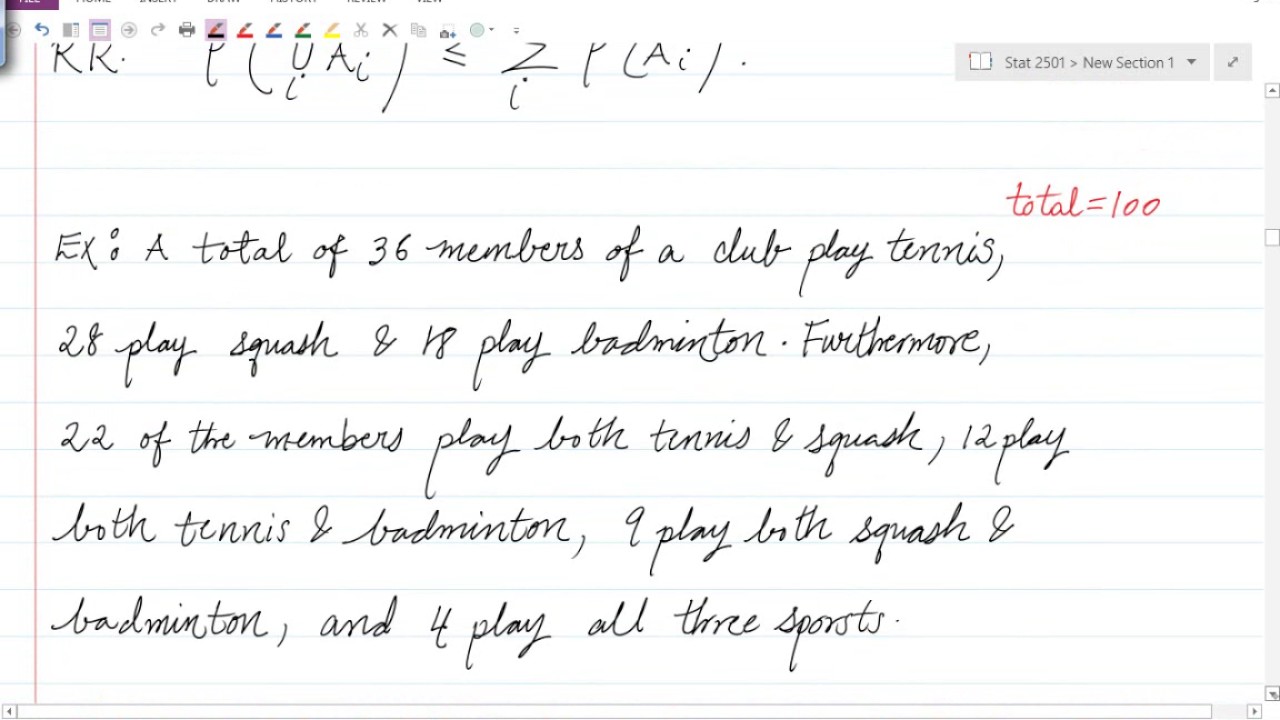 FILE HOME INSERT DRAW HISTORY REVIEW VIEW
RR. P(∪ᵢ Aᵢ) ≤ Σᵢ P(Aᵢ).
Stat 2501 > New Section 1
total=100
Ex: A total of 36 members of a club play tennis,
28 play squash & 18 play badminton. Furthermore,
22 of the members play both tennis & squash, 12 play
both tennis & badminton, 9 play both squash &
badminton, and 4 play all three sporsts.